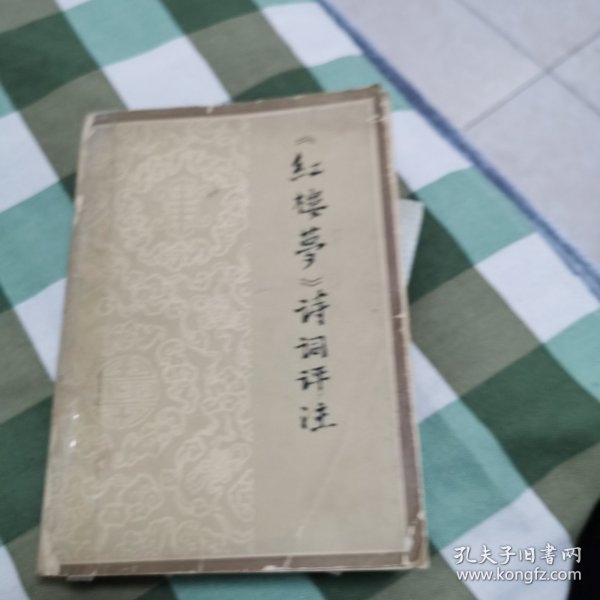 《红楼梦》诗词评注
孔夫子旧书网
www.kongfz.com